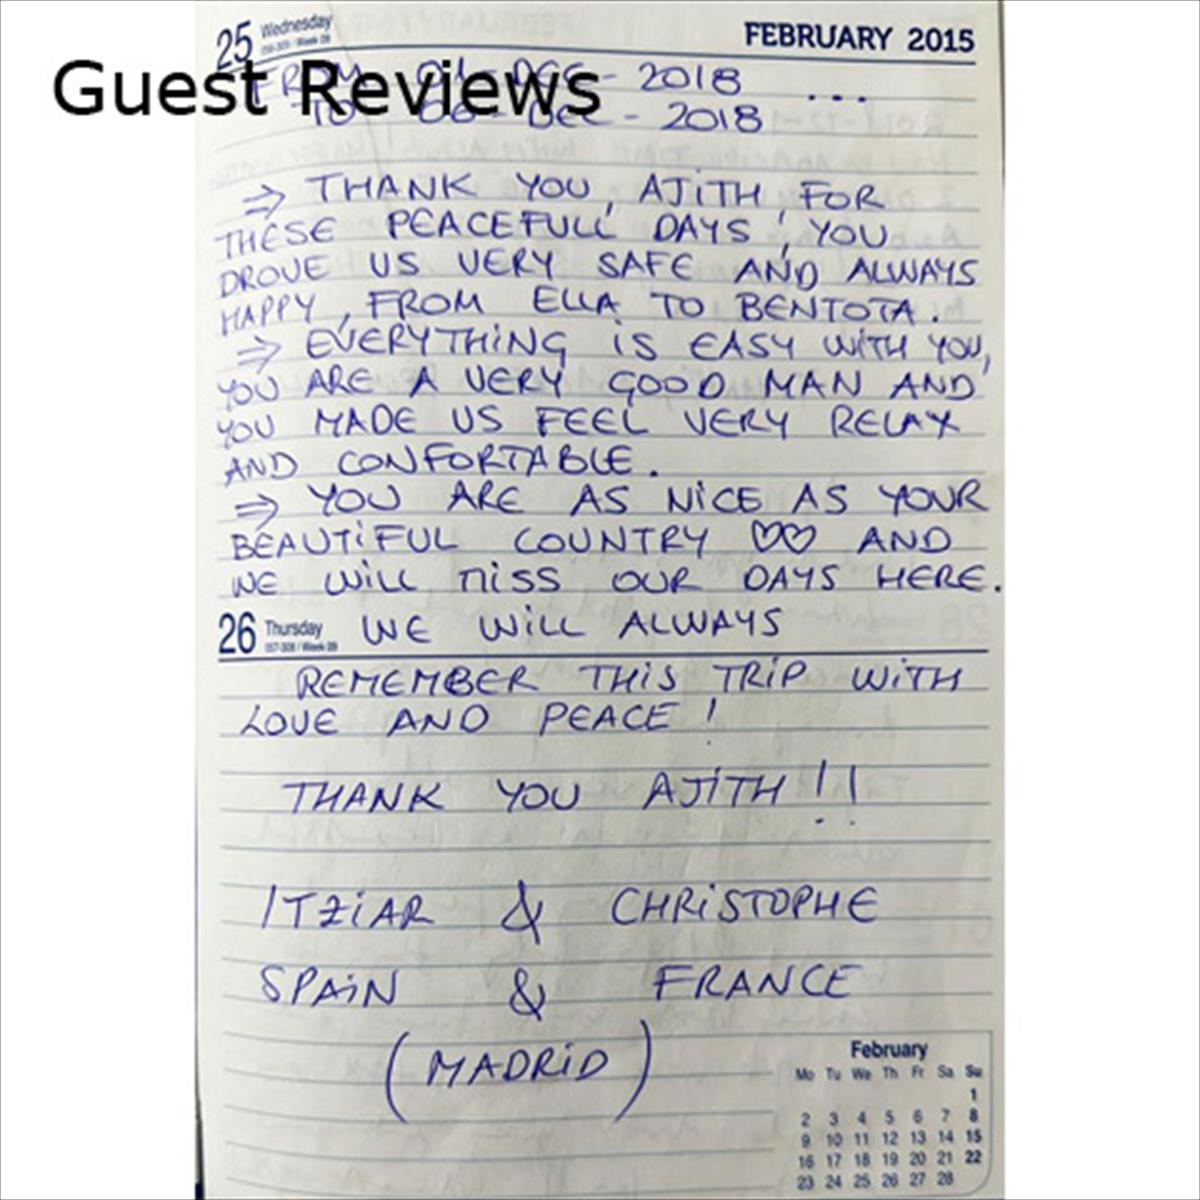 25 Wednesday
FEBRUARY 2015
Guest Reviews
FROM 01-DEC-2018 ...
TO 06-DEC-2018
⇒ THANK YOU, AJITH, FOR
THESE PEACEFULL DAYS, YOU
DROVE US VERY SAFE AND ALWAYS
HAPPY, FROM ELLA TO BENTOTA.
⇒ EVERYTHING iS EASY WiTH YOU,
YOU ARE A VERY GOOD MAN AND
YOU MADE US FEEL VERY RELAX
AND CONFORTABLE.
⇒ YOU ARE AS NiCE AS YOUR
BEAUTiFUL COUNTRY ♡♡ AND
WE WiLL MiSS OUR DAYS HERE.
26 Thursday WE WiLL ALWAYS
REMEMBER THiS TRiP WiTH
LOVE AND PEACE!
THANK YOU AJiTH!!
ITZiAR & CHRiSTOPHE
SPAiN & FRANCE
(MADRiD)
February
Mo Tu We Th Fr Sa Su
1
2 3 4 5 6 7 8
9 10 11 12 13 14 15
16 17 18 19 20 21 22
23 24 25 26 27 28